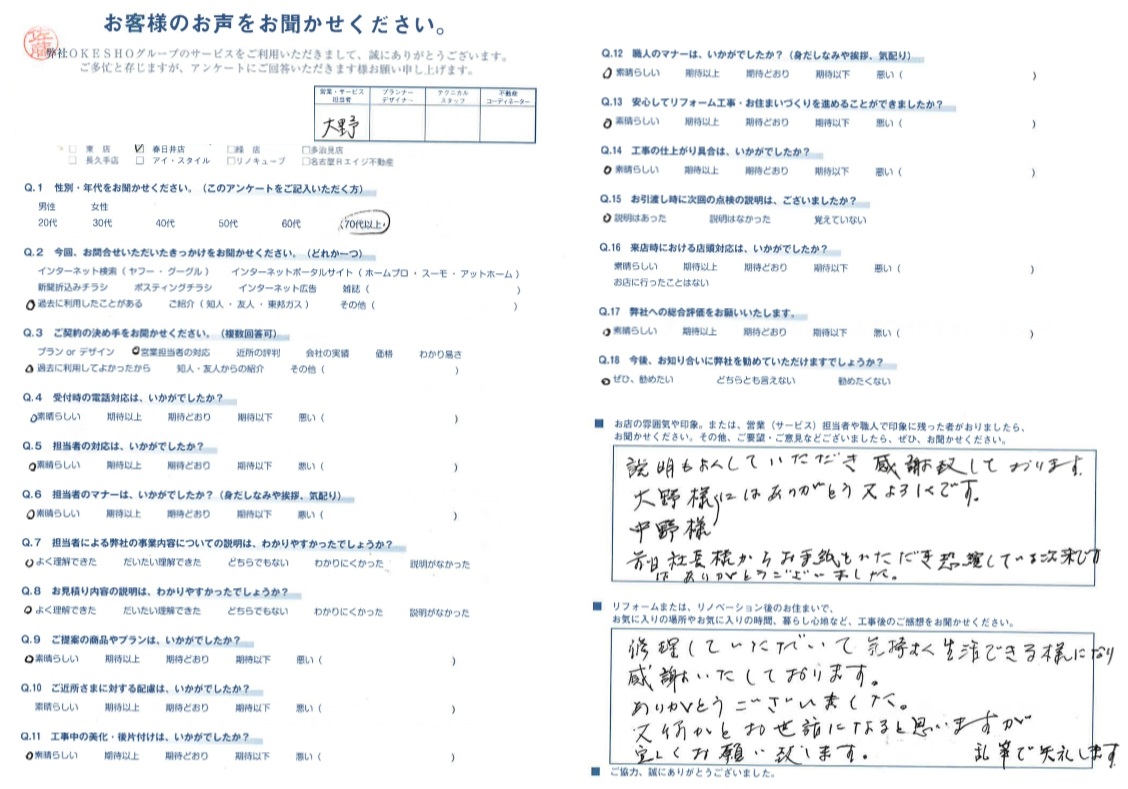 お客様のお声をお聞かせください。
弊社OKESHOグループのサービスをご利用いただきまして、誠にありがとうございます。
ご多忙と存じますが、アンケートにご回答いただきます様お願い申し上げます。
営業・サービス担当者 プランナーデザイナー テクニカルスタッフ 不動産コーディネーター
大野
東 店 春日井店 緑 店 多治見店
長久手店 アイ・スタイル リノキューブ 名古屋Rエイジ不動産
Q.1 性別・年代をお聞かせください。(このアンケートをご記入いただく方)
男性 女性
20代 30代 40代 50代 60代 70代以上
Q.2 今回、お問合せいただいたきっかけをお聞かせください。(どれか一つ)
インターネット検索(ヤフー・グーグル) インターネットポータルサイト(ホームプロ・スーモ・アットホーム)
新聞折込みチラシ ポスティングチラシ インターネット広告 雑誌( )
過去に利用したことがある ご紹介(知人・友人・東邦ガス) その他( )
Q.3 ご契約の決め手をお聞かせください。(複数回答可)
プラン or デザイン 営業担当者の対応 近所の評判 会社の実績 価格 わかり易さ
過去に利用してよかったから 知人・友人からの紹介 その他( )
Q.4 受付時の電話対応は、いかがでしたか?
素晴らしい 期待以上 期待どおり 期待以下 悪い( )
Q.5 担当者の対応は、いかがでしたか?
素晴らしい 期待以上 期待どおり 期待以下 悪い( )
Q.6 担当者のマナーは、いかがでしたか?(身だしなみや挨拶、気配り)
素晴らしい 期待以上 期待どおり 期待以下 悪い( )
Q.7 担当者による弊社の事業内容についての説明は、わかりやすかったでしょうか?
よく理解できた だいたい理解できた どちらでもない わかりにくかった 説明がなかった
Q.8 お見積り内容の説明は、わかりやすかったでしょうか?
よく理解できた だいたい理解できた どちらでもない わかりにくかった 説明がなかった
Q.9 ご提案の商品やプランは、いかがでしたか?
素晴らしい 期待以上 期待どおり 期待以下 悪い( )
Q.10 ご近所さまに対する配慮は、いかがでしたか?
素晴らしい 期待以上 期待どおり 期待以下 悪い( )
Q.11 工事中の美化・後片付けは、いかがでしたか?
素晴らしい 期待以上 期待どおり 期待以下 悪い( )
Q.12 職人のマナーは、いかがでしたか?(身だしなみや挨拶、気配り)
素晴らしい 期待以上 期待どおり 期待以下 悪い( )
Q.13 安心してリフォーム工事・お住まいづくりを進めることができましたか?
素晴らしい 期待以上 期待どおり 期待以下 悪い( )
Q.14 工事の仕上がり具合は、いかがでしたか?
素晴らしい 期待以上 期待どおり 期待以下 悪い( )
Q.15 お引渡し時に次回の点検の説明は、ございましたか?
説明はあった 説明はなかった 覚えていない
Q.16 来店時における店頭対応は、いかがでしたか?
素晴らしい 期待以上 期待どおり 期待以下 悪い( )
お店に行ったことはない
Q.17 弊社への総合評価をお願いいたします。
素晴らしい 期待以上 期待どおり 期待以下 悪い( )
Q.18 今後、お知り合いに弊社を勧めていただけますでしょうか?
ぜひ、勧めたい どちらとも言えない 勧めたくない
お店の雰囲気や印象。または、営業(サービス)担当者や職人で印象に残った者がおりましたら、
お聞かせください。その他、ご要望・ご意見などございましたら、ぜひ、お聞かせください。
説明もよくしていただき 感謝致して おります。
大野様にはありがとう 又よろしくです。
中野様
社長様からお手紙をいただき恐縮している次第です
はありがとうございました。
リフォームまたは、リノベーション後のお住まいで、
お気に入りの場所やお気に入りの時間、暮らし心地など、工事後のご感想をお聞かせください。
修理していただいて 気持よく生活できる様になり
感謝いたしております。
ありがとうございました。
又何かとお世話になると思いますが
宜しくお願い致します。 乱筆で失礼します
ご協力、誠にありがとうございました。